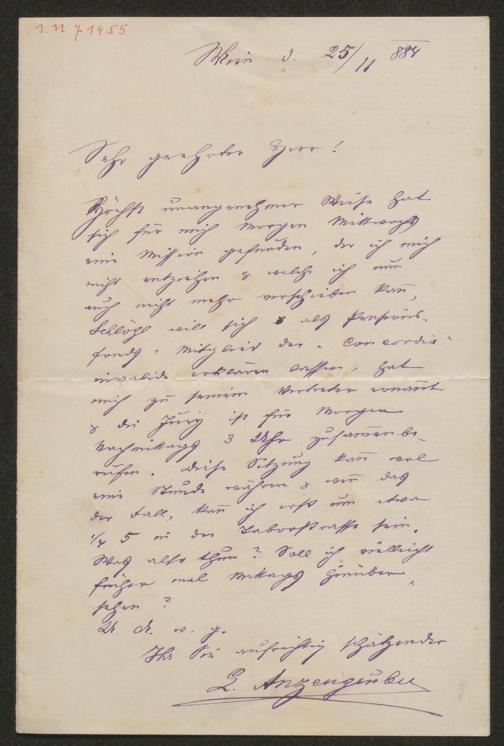 I.N 71455
Wien d. 25/11 884
Sehr geehrter Herr!
Höchst unangenehmer Weise hat
sich für mich Morgen Mittwochs
eine Mission gefunden, der ich mich
nicht entziehen & welche ich nun
auch nicht mehr verschieben kann,
Schlögl will sich als Pensions-
fonds-Mitglied der "Concordia"
invalide erklären lassen, hat
mich zu seinem Vertreter ernannt
& die Jury ist für Morgen
Nachmittags 3 Uhr zusammenbe-
rufen. Diese Sitzung kann wol
eine Stunde währen & wenn das
der Fall, kann ich erst um etwa
1/4 5 in der Taborstrasse sein.
Was also thun? Soll ich vielleicht
früher mal Mittags hinüber
sehen?
U. A. w. g.
Ihr Sie aufrichtig schätzender
L. Anzengruber